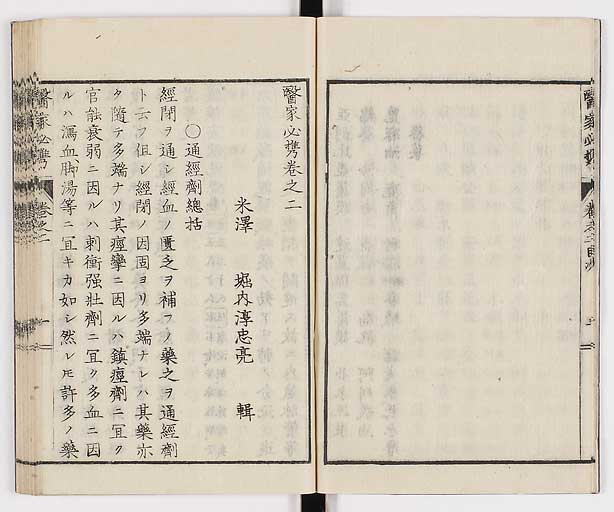 醫家必携 卷之二目次
醫家必携卷之二
米澤 堀内淳忠亮 輯
〇通經劑總括
經閉ヲ通シ經血ノ匱乏ヲ補フノ藥之ヲ通經劑
ト云フ但シ經閉ノ因固ヨリ多端ナレハ其藥亦
タ隨テ多端ナリ其痙攣ニ因ルハ鎮痙劑ニ冝ク
官能衰弱ニ因ルハ刺衝强壯劑ニ冝ク多血ニ因
ルハ瀉血、脚湯等ニ冝キカ如シ然レ𪜈許多ノ藥
醫家必携 卷之二